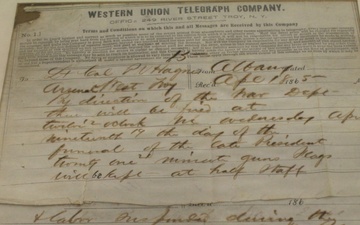 WESTERN UNION TELEGRAPH COMPANY.
OFFICE, RIVER STREET TROY, N. Y.
Terms and Conditions on which this and all Messages are Received by this Company
No. 1
To Lt Col P V Hagner
Albany
Apl 1865
Arsenal West Troy
By direction of the War Dept
there will be fired at
twelve o'clock on wednesday Apr
nineteenth the day of the
funeral of the late President
twenty one minute guns Flags
will be kept at half staff
186
& labor suspended during the